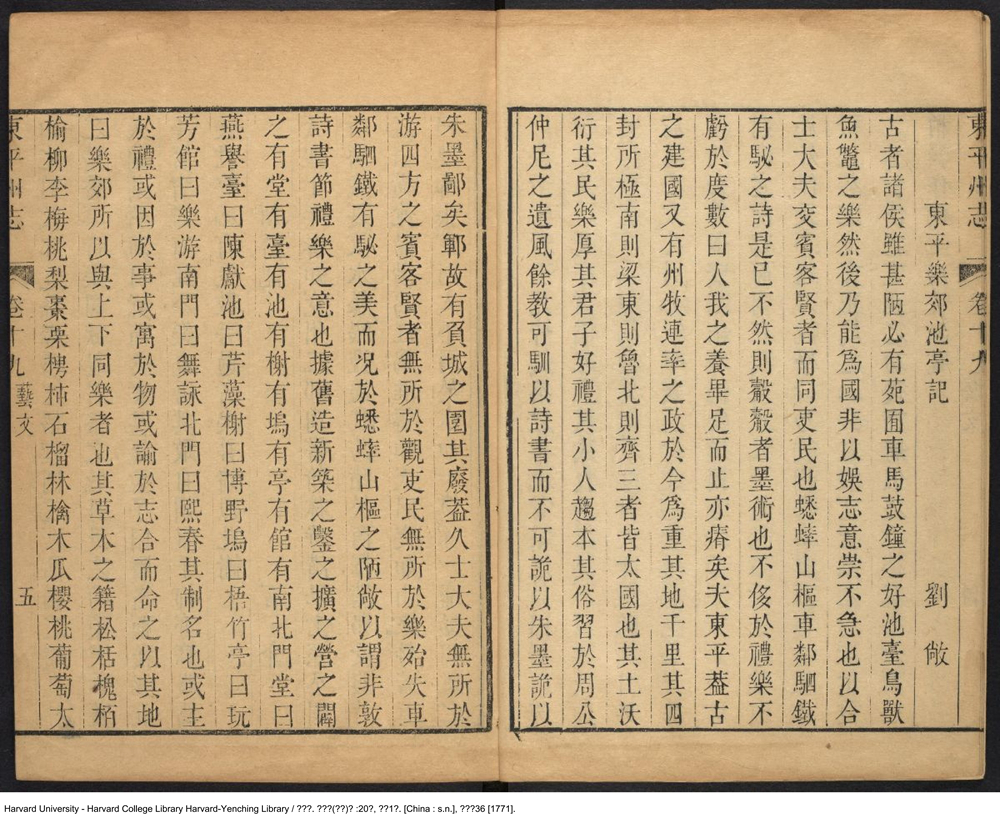 東平州志 卷十九
東平樂郊池亭記 劉敞
古者諸侯雖甚陋必有苑囿車馬鼓鐘之好池臺鳥獸
魚鼈之樂然後乃能爲國非以娛志意崇不急也以合
士大夫交賓客賢者而同吏民也蟋蟀山樞車鄰駟鐵
有駜之詩是已不然則觳觳者墨術也不侈於禮樂不
虧於度數曰人我之養畢足而止亦瘠矣夫東平葢古
之建國又有州牧連率之政於今爲重其地千里其四
封所極南則梁東則魯北則齊三者皆太國也其土沃
衍其民樂厚其君子好禮其小人趨本其俗習於周公
仲尼之遺風餘教可馴以詩書而不可詭以朱墨詭以
朱墨鄙矣鄆故有負城之囿其廢葢久士大夫無所於
游四方之賓客賢者無所於觀吏民無所於樂殆失車
鄰駟鐵有駜之美而况於蟋蟀山樞之陋敞以謂非敦
詩書節禮樂之意也據舊造新築之鑿之擴之營之闢
之有堂有臺有池有榭有塢有亭有館有南北門堂曰
燕譽臺曰陳獻池曰芹藻榭曰博野塢曰梧竹亭曰玩
芳館曰樂游南門曰舞詠北門曰熙春其制名也或主
於禮或因於事或寓於物或諭於志合而命之以其地
曰樂郊所以與上下同樂者也其草木之籍松栝槐栢
榆柳李梅桃梨棗栗樗柿石榴林檎木瓜櫻桃葡萄太
東平州志 卷十九 藝文 五
Harvard University - Harvard College Library Harvard-Yenching Library / ???. ???(??)? :20?, ??1?. [China : s.n.], ???36 [1771].